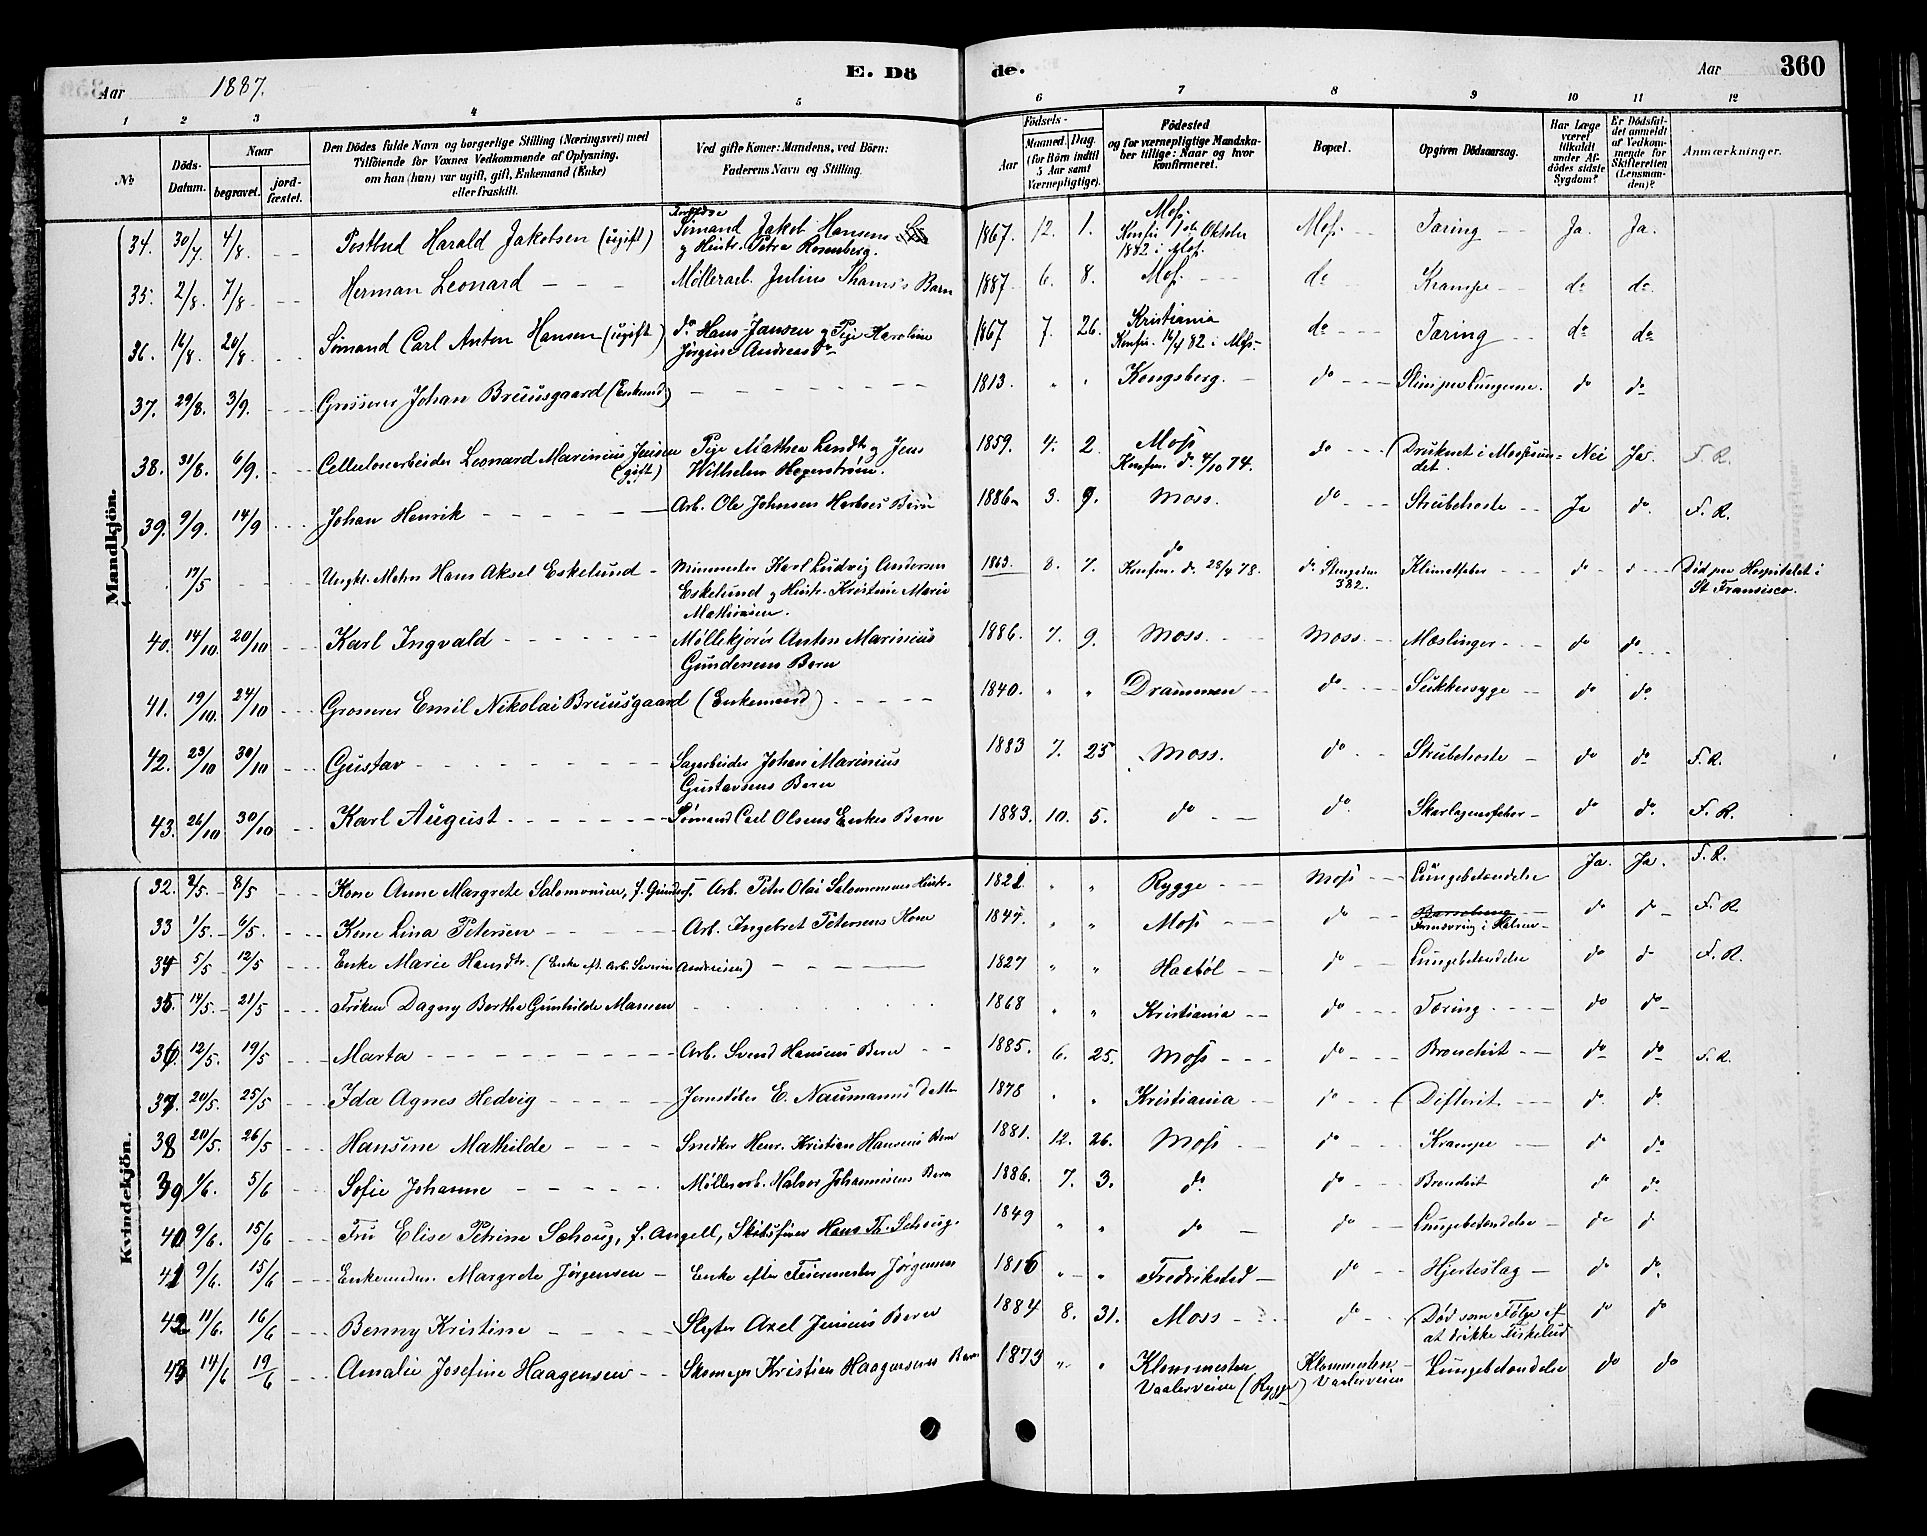 Aar 1887. E. Dö de. Aar 360
1 2 3 4 5 6 7 8 9 10 11 12
№
Döds-Datum.
Naar
begravet. jord-fæstet.
Den Dödes fulde Navn og borgerlige Stilling (Næringsvei) med
Tilföiende for Voxnes Vedkommende af Oplysning,
om han (hun) var ugift, gift, Enkemand (Enke)
eller fraskilt.
Ved gifte Koner: Mandens, ved Börn:
Faderens Navn og Stilling.
Födsels-
Aar Maaned. Dag.
(for Börn indtil
5 Aar samt
Værnepligtige).
Födested
og for værnepligtige Mandska-
ber tillige: Naar og hvor
konfirmeret.
Bopæl.
Opgiven Dödsaarsag.
Har Læge
været
tilkaldt
under Af-
dödes sidste
Sygdom?
Er Dödsfal-
det anmeldt
af Vedkom-
mende for
Skifteretten
(Lensman-
den)?
Anmærkninger.
Mandkjön.
34. 30/7 4/8. Postbud Harald Jakobsen (ugift) Sömand Jakob Hansen 1867. 12. 1. Moss. Moss. Tæring Ja. Ja.
g Hustr. Petra Rosenberg. Konfir. 1ste Oktober
1882 i Moss.
35. 2/8. 7/8. Herman Leonard Møllerarb. Julius Thams's Barn 1887 6. 8. Moss. do Krampe do do
36. 16/8. 20/8. Sömand Carl Anton Hansen (ugift) do Hans Jansen g Pige Karoline 1867 7. 26. Kristiania do Tæring do do
Jörgine Andreasdr Konfir. 16/4 82 i Moss
37. 29/8. 3/9. Grosserer Johan Bruusgaard (Enkemd) 1813. " " Kongsberg. do do do
38. 31/8. 6/9. Cellulosearbeider Leonard Marinius Jensen Pige Mathea Lendt g Jens 1859. 4. 2 Moss do Druknet i Mossesun- Nei Ja F. R.
(gift) Wilhelm Hegerström. Konfir. d. 4/10 74. det.
39. 9/9. 14/9 Johan Henrik Arb. Ole Johnsen Barn 1886 3. 9. Moss. do Strubehoste Ja do F. R.
17/5 Ungk. Hans Aksel Eskelund Karl Ludvig Andersen 1863. 8. 7. do do Klimatfeber do d Död paa Hospitalet i
Eskelund g Hustr. Kristine Marie Konfir. d. 28/4 78. 382. St Fransisco.
Mathisen.
40. 14/10. 20/10 Karl Ingvald Möllekjörer Anton Marinius 1886. 7. 9. Moss. Moss. Mæslinger do do
Gundersens Barn
41. 19/10. 24/10 Grosserer Emil Nikolai Bruusgaard (Enkemand) 1840. " " Drammen do Sukkersyge do do
42. 23/10 30/10 Gustav Sagarbeider Johan Marinius 1883 7. 25 Moss. do Strubehoste do do F. R.
Gustavsens Barn
43. 26/10 30/10 Karl August Sömand Carl Olsens Enkes Barn 1883. 10. 5. do do Skarlagensfeber do do F. R.
Kvindekjön.
32. 2/5. 8/5 Kone Anne Margrete Salomonsen, f. Arb. Peter Olai Salomonsens Hustr. 1821. " " Rygge Moss Lungebetændelse Ja. Ja. F. R.
33 1/5. 6/5. Kone Lina Petersen Arb. Ingebret Petersens Kone 1847. " " Moss do do do F. R.
34 5/5 12/5 Enke Marie Hansdtr. (Enke eft. Arb. Severin Andersen) 1827 " " Haabøl do Lungebetændelse do d F. R.
35. 14/5. 21/5 Fröken Dagny Berthe Gunhilde Mansen 1868 " " Kristiania do Tæring do do
36. 12/5. 19/5 Marta Arb. Svend Hansens Barn 1885. 6. 25. Moss do Bronchit do do F. R.
37. 20/5. 25/5 Ida Agnes Hedvig Jernstöber E. Naumanns Datter 1878 " " Kristiania do Difterit do do
38 20/5. 26/5 Hansine Mathilde Snedker Henr. Kristian Hansens Barn 1881. 12. 26. Moss do Krampe do do
39 1/6. 5/6 Sofie Johanne Möllerarb. Halvor Johannesens Barn 1886. 7. 3. do do Bronchit do do
40 9/6. 15/6 Fru Elise Petrine Schoug, f. Angell, Skibsförer Hans Th. Schoug. 1849 " " do do Lungebetændelse do d
41 9/6. 15/6 Margrete Jørgensen Enke efter Feiermester Jørgensen 1816 " " Fredrikstad do Hjerteslag do do
42 11/6. 16/6 Benny Kristine Slagter Axel Jensens Barn 1884 8. 31. Moss do Död som Følge af do do
at drikke Fiskelud
43 14/6 19/6 Amalie Josefine Haagensen Skomager Kristian Haagensens Barn 1873 " " Klommesten Klommesten Lungebetændelse do do
Vaalerveien (Rygge) Vaalerveien